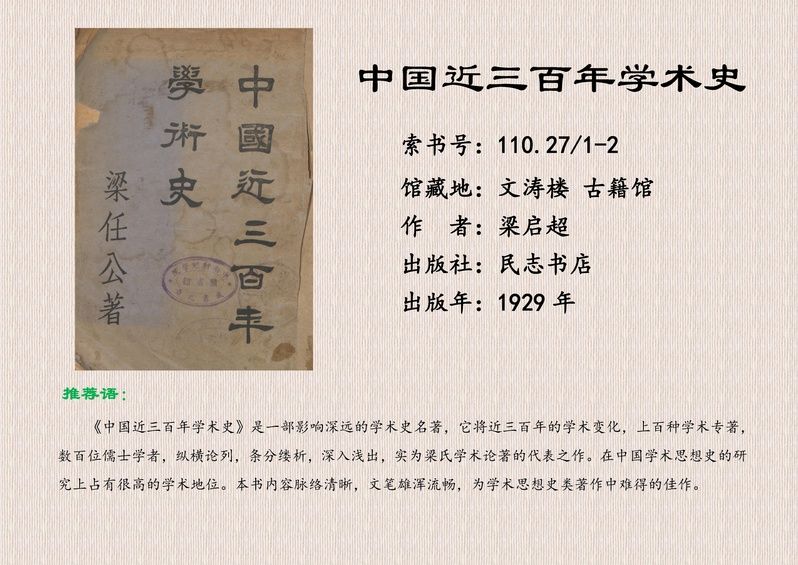 中國近三百年
學術史
梁任公著
中国近三百年学术史
索书号：110.27/1-2
馆藏地：文涛楼 古籍馆
作　者：梁启超
出版社：民志书店
出版年：1929 年
推荐语：
《中国近三百年学术史》是一部影响深远的学术史名著，它将近三百年的学术变化，上百种学术专著，
数百位儒士学者，纵横论列，条分缕析，深入浅出，实为梁氏学术论著的代表之作。在中国学术思想史的研
究上占有很高的学术地位。本书内容脉络清晰，文笔雄浑流畅，为学术思想史类著作中难得的佳作。